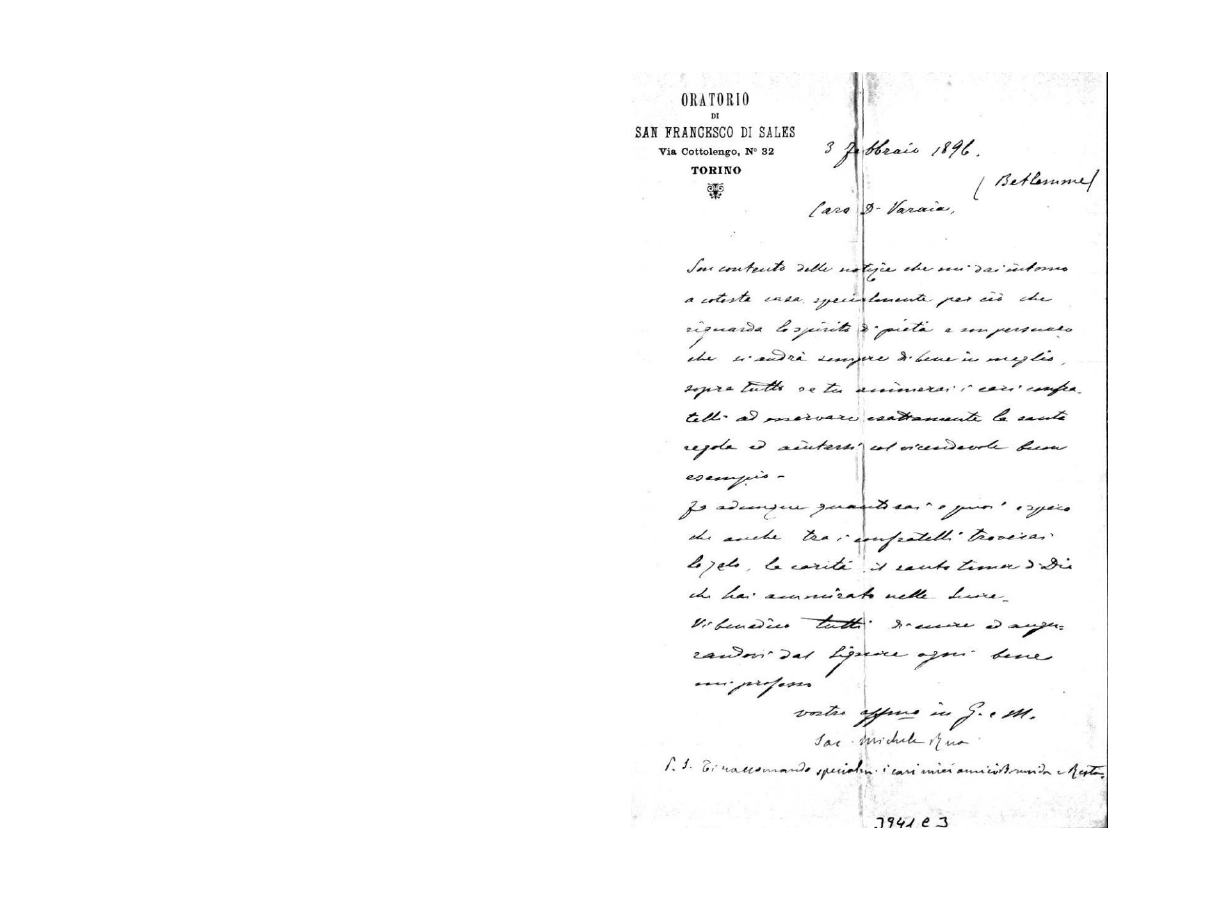 ORATORIO
DI
SAN FRANCESCO DI SALES
Via Cottolengo, Nº 32
TORINO
3 Febbraio 1896.
(Betlemme)
Caro D. Varaia,
Son contento delle notizie che mi dai intorno
a cotesta casa specialmente per ciò che
riguarda lo spirito di pietà e son persuaso
che si andrà sempre di bene in meglio,
sopra tutto se tu animerai i cari confra-
telli ad osservare esattamente la santa
regola ed aiutarsi col vicendevole buon
esempio -
Fa adunque quanto sai e puoi e spero
che anche tra i confratelli troverai
lo zelo, la carità, il santo timor di Dio
che hai ammirato nelle Suore.
Vi benedico tutti di cuore ed augu-
randovi dal Signore ogni bene
mi professo
vostro affmo in G. e M.
Sac. Michele Rua
P. S. Ti raccomando specialm. i cari miei amici e
3941 C 3